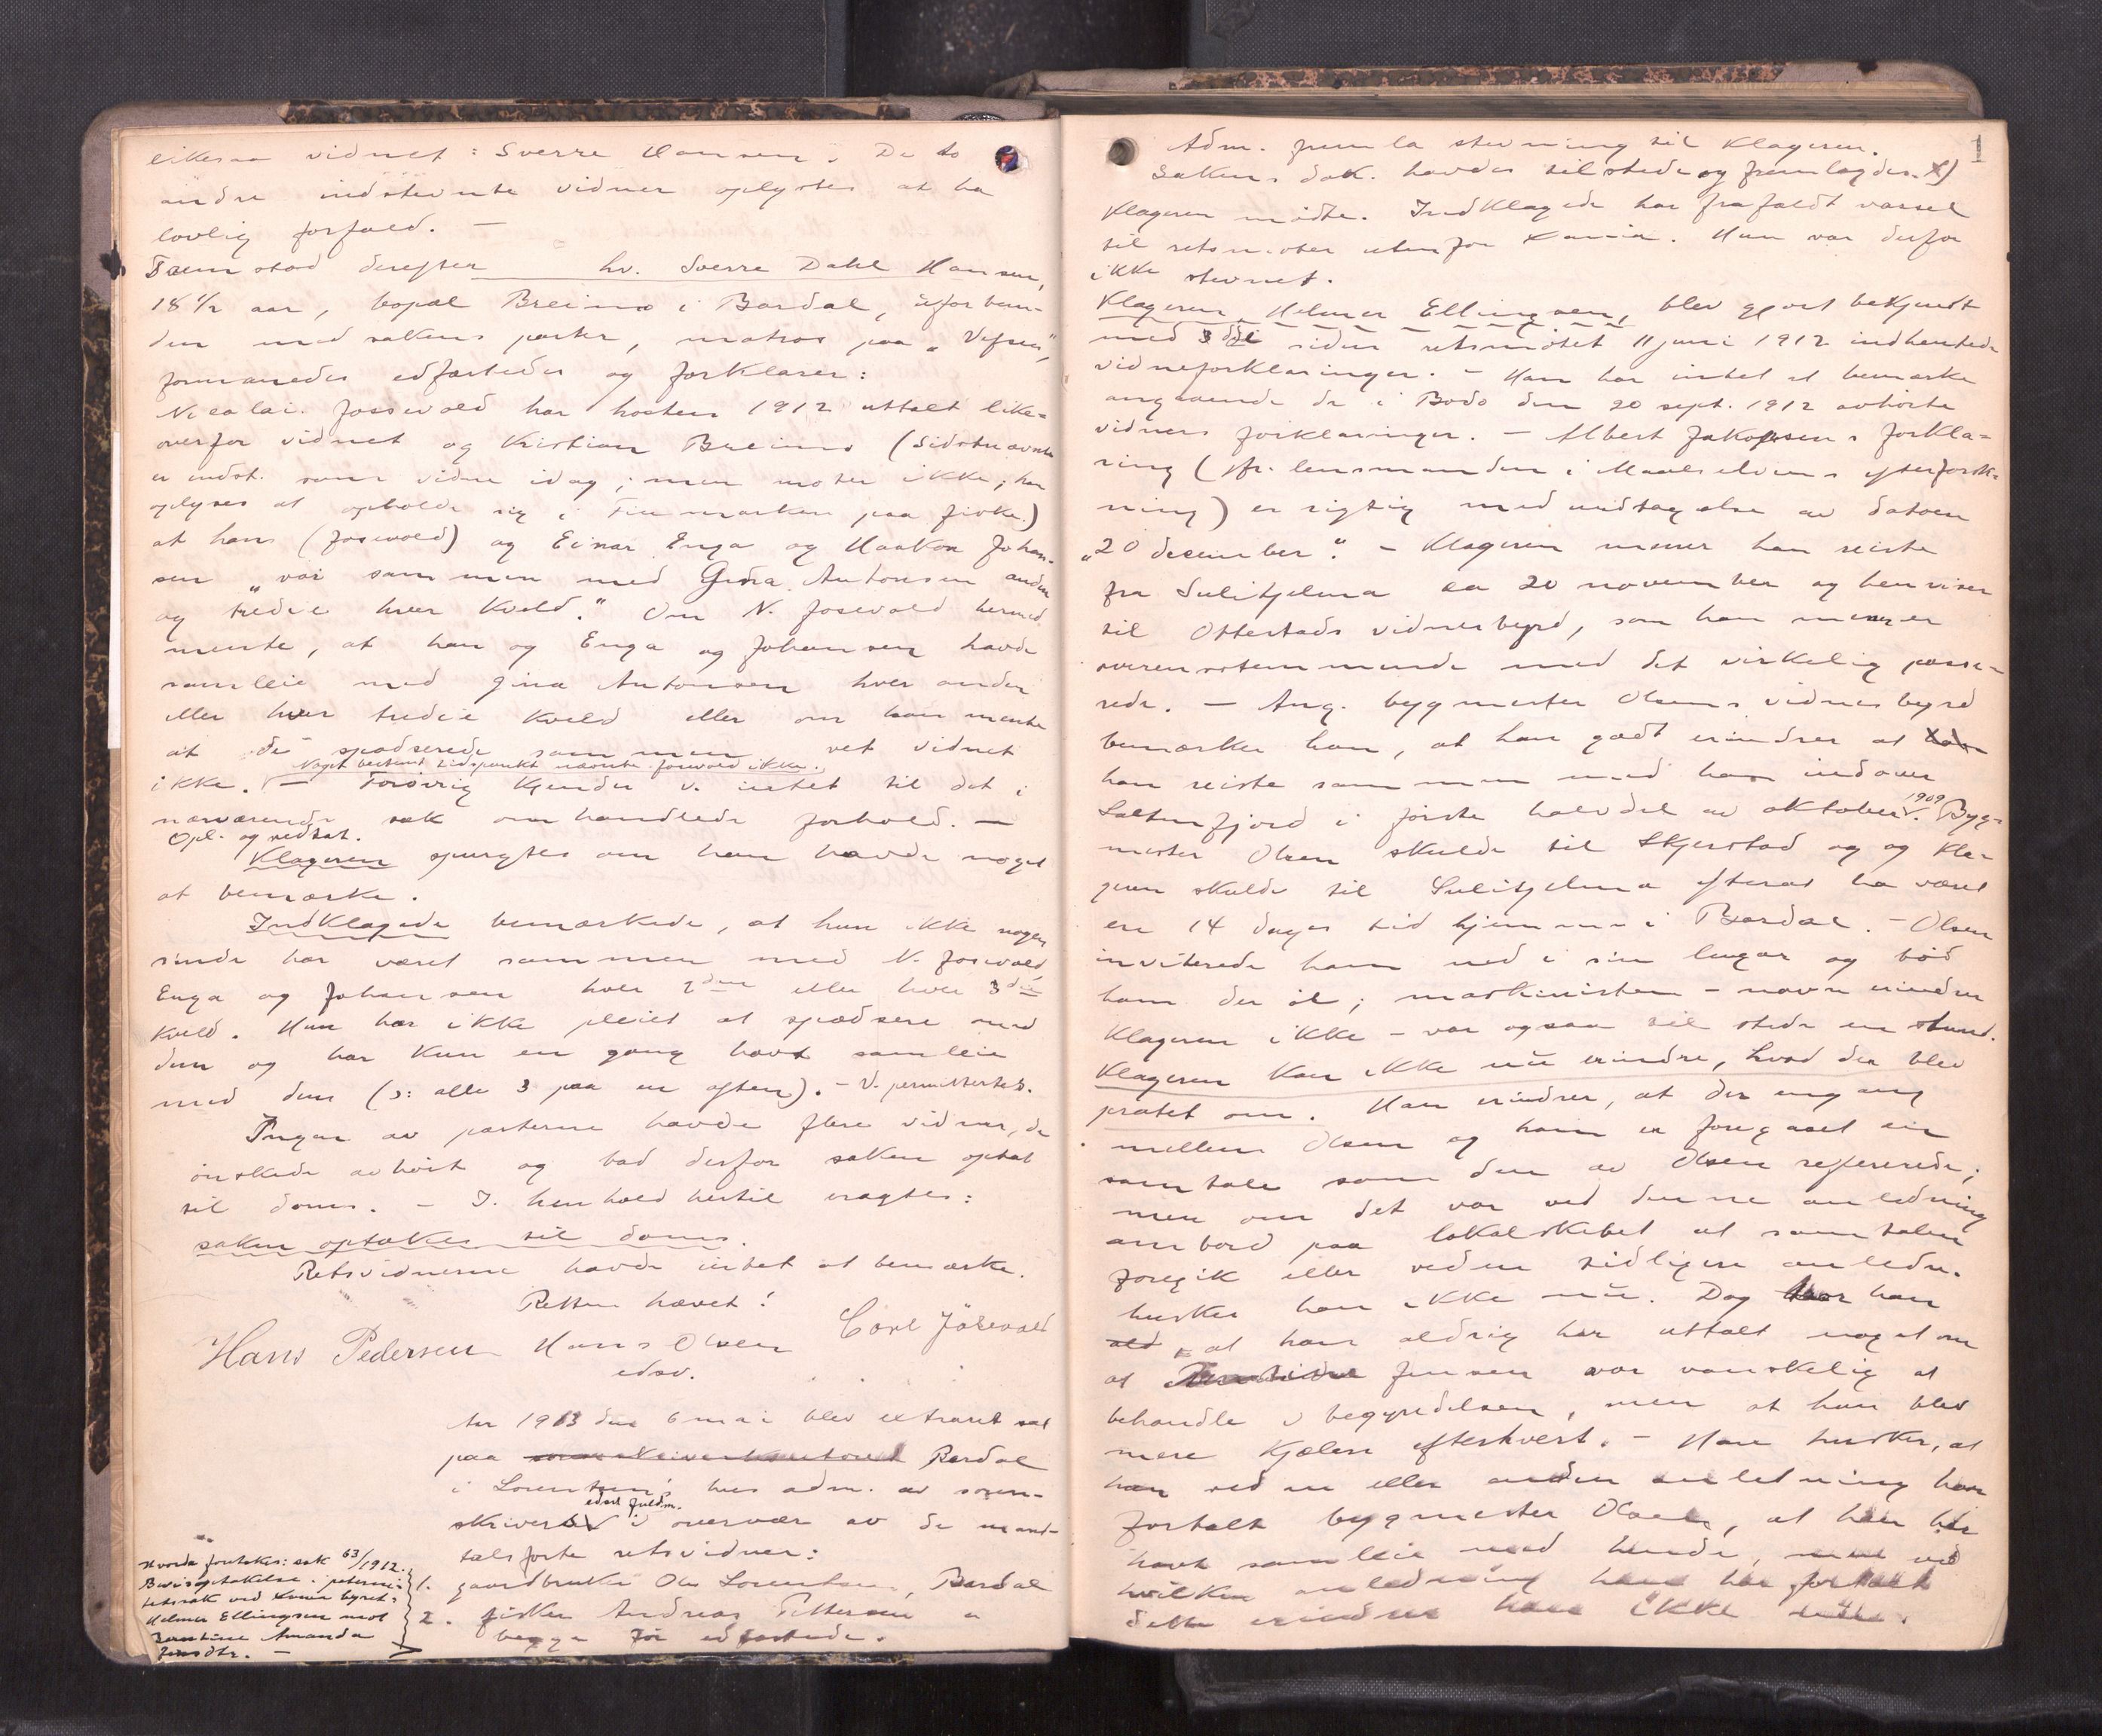 likesaa vidnet: Sverre Hansen. De to
andre indstevnte vidner oplystes at ha
lovlig forfald. —
Frem stod derefter hv. Sverre Dahl Hansen,
18 1/2 aar, bopæl Breimo i Bardal, uforbun-
den med sakens parter, matros paa „Vefsen",
formanedes edfæstedes og forklarer:
Nicolai Jossevold har høsten 1912 uttalt like-
overfor vidnet og Kristian Breimo (sidstnævnte
er indst. som vidne idag; men møter ikke; han
oplyses at opholde sig i Finmarken paa fiske.)
at han (Josevold) og Einar Enga og Haakon Johan-
sen „var sammen med Gina Antonsen anden
og tredie hver kveld." Om N. Josevold hermed
mente, at han og Enga og Johansen havde
samleie med Gina Antonsen hver anden
eller hver tredie kveld eller om han mente
at de spadserede sammen vet vidnet
Noget bestemt tidspunkt nævnte Josevold ikke.
ikke. — Forøvrig kjender v. intet til det i
nærværende sak omhandlede forhold. —
Opl. og vedtat.
Klageren spurgtes om han havde noget
at bemærke.
Indklagede bemærkede, at hun ikke nogen
sinde har været sammen med N. Josevold,
Enga og Johansen hver 2den eller hver 3die
kveld. Hun har ikke pleiet at spadsere med
dem og har kun en gang havt samleie
med dem (ɔ: alle 3 paa en aften). - V. permittertes.
Ingen av parterne havde flere vidner, de
ønskede avhørt og bad derfor saken optat
til doms. - I henhold hertil vragtes:
saken optakes til doms.
Retsvidnerne havde intet at bemærke.
Retten hævet!
Hans Pedersen Hans Olsen Carl Jösevold
edsv.
Aar 1913 den 6 mai blev extraret sat
paa Bardal
i Lorentsens hus adm. av soren-
skriverens edsv. fuldm. i overvær av de mand-
talsførte retsvidner:
1. gaardbruker Ole Lorentsen, Bardal
2. fisker Andreas Pettersen "
begge før edfæstede.
Hvorda foretokes: sak 63/1912.
Bevisoptakelse i paterni-
tetssak ved Xania byret:
Helmer Ellingsen mot
Berntine Amanda
Jensdtr. —
1
Adm. fremla stevning til klageren.
Sakens dok. havdes tilstede og fremlagdes. X)
Klageren mødte. Indklagede har frafaldt varsel
til retsmøter utenfor Xania. Hun var derfor
ikke stevnet.
Klageren, Helmer Ellingsen, blev gjort bekjendt
med de siden retsmøtet 11 juni 1912 indhentede
vidneforklaringer. - Han har intet at bemærke
angaaende de i Bodø den 20 sept. 1912 avhørte
vidners forklaringer. - Albert Jakopsens forkla-
ring (jfr. lensmanden i Maalselvens efterforsk-
ning) er rigtig med undtagelse av datoen
„20 december". - Klageren mener han reiste
fra Sulitjelma ca 20 november og henviser
til Otterstads vidnesbyrd, som han mener er
overensstemmende med det virkelig passe-
rede. — Ang. bygmester Olsens vidnesbyrd
bemærker han, at han godt erindrer at
han reiste sammen med ham indover
Saltenfjord i første halvdel av oktober 1909. Byg-
mester Olsen skulde til Skjerstad og og kla-
geren skulde til Sulitjelma efterat ha været
en 14 dages tid hjemme i Bardal. - Olsen
inviterede ham ned i sin lugar og bød
ham der øl; maskinisten - navn erindrer
klageren ikke - var ogsaa til stede en stund.
Klageren kan ikke nu erindre, hvad der blev
pratet om. Han erindrer, at der engang
mellem Olsen og ham er foregaaet en
samtale som den av Olsen refererede;
men om det var ved denne anledning
ombord paa lokalskibet at samtalen
foregik eller ved en tidligere anledn.
husker han ikke nu. Dog han
at han aldrig har uttalt noget om
at Jensen var vanskelig at
behandle i begyndelsen, men at hun blev
mere kjælen efterhvert. - Han husker, at
han ved en eller anden anledning har
fortalt bygmester Olsen, at han har
havt samleie med hende, men ved
hvilken anledning han har fortalt
dette erindrer han ikke nu.